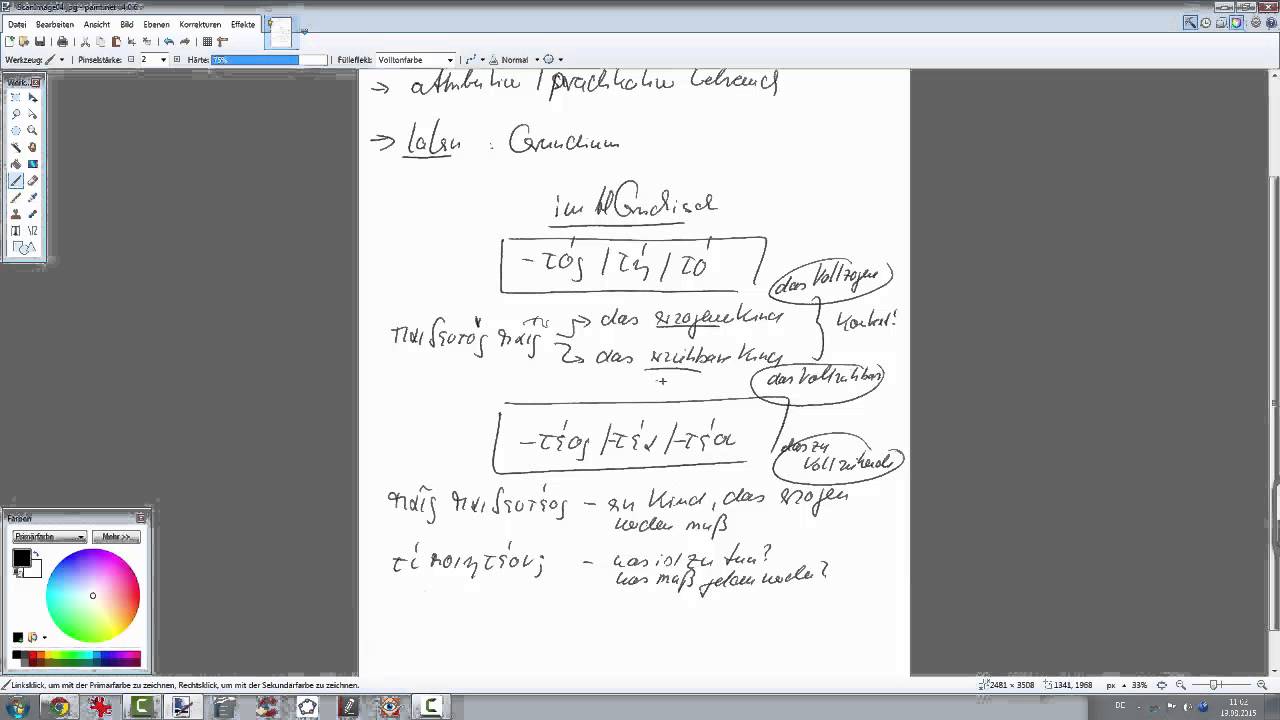 ScanImage04.jpg - paint.net v4.0.6
Datei Bearbeiten Ansicht Bild Ebenen Korrekturen Effekte
Werkzeug: Pinselstärke: 2 Härte: 75% Fülleffekt: Volltonfarbe Normal
→ attributiv / prädikativ
→ Latein : Gerundium
im AGriechisch
-τός / τή / τό
das Vollzogene
παιδευτός παῖς → das erzogene Kind
Kontext!
→ das erziehbare Kind
das Vollziehbare
-τέος / -τέα / -τέον
das zu
Vollziehende
παῖς παιδευτέος – ein Kind, das erzogen
werden muß
τί ποιητέον; – was ist zu tun?
was muß getan werden?
Farben
Primärfarbe Mehr >>
Linksklick, um mit der Primärfarbe zu zeichnen, Rechtsklick, um mit der Sekundärfarbe zu zeichnen.
2481 × 3508 1341, 1968 px 33%
DE 11:02
19.08.2015